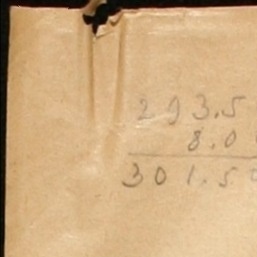 293.5
8.0
301.5